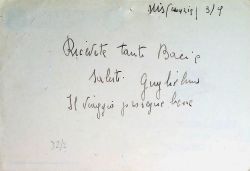 3/9
Ricevete tanti Baci e
saluti. Guglielmo
Il viaggio prosegue bene
32/2